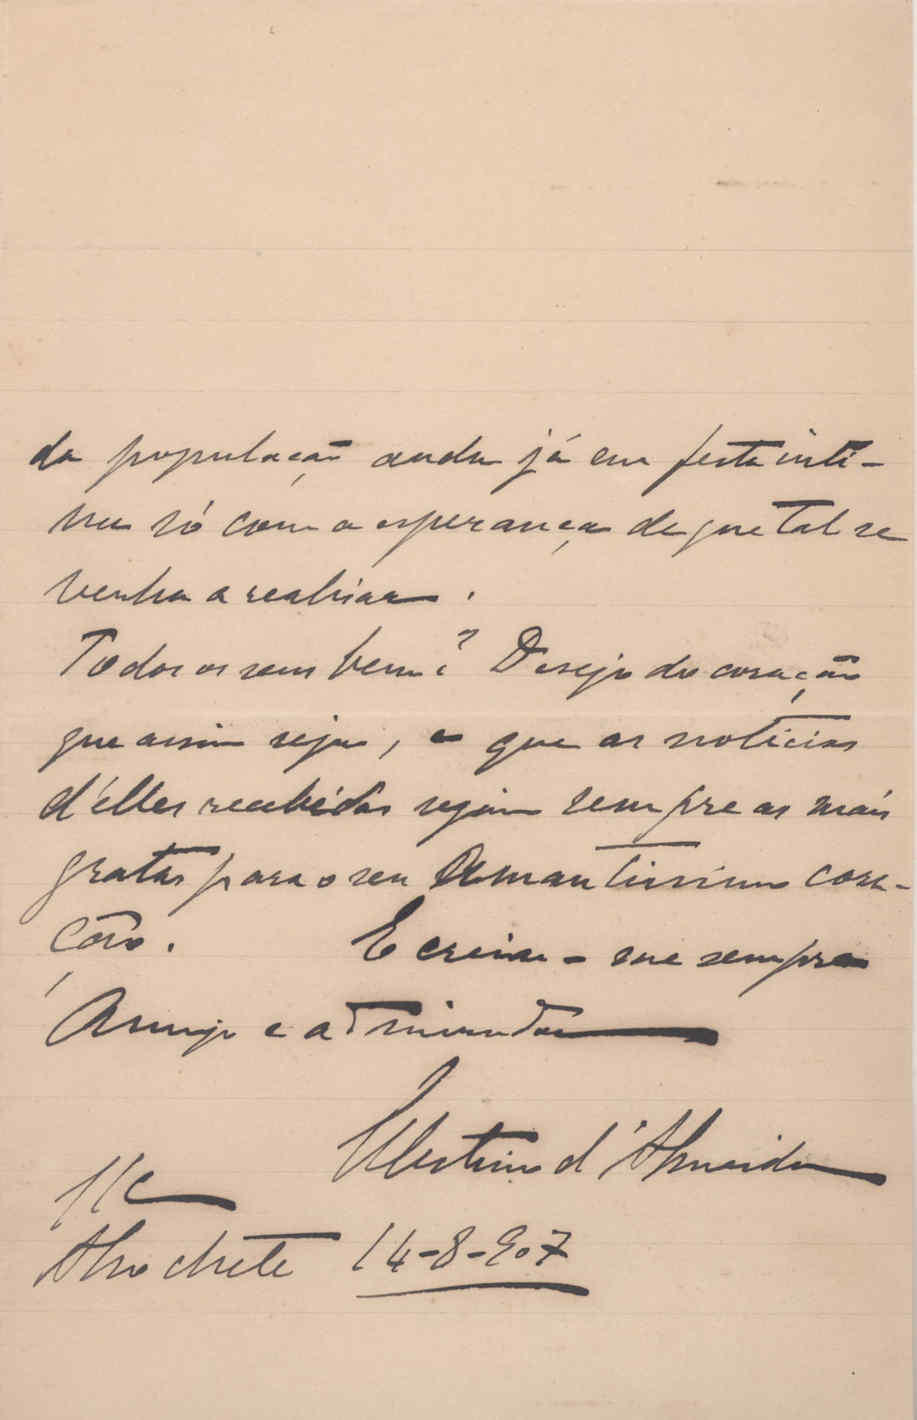 da população anda já em festa inti-
ma só com a esperança de que tal se
venha a realisar.
Todos os seus bem? Desejo do coração
que assim seja, e que as noticias
d'elles recebidas sejam sempre as mais
gratas para o seu Amantissimo cora-
ção. E creia-me sempre
Amigo e admirador
d'Almeida
S/C
Alcochete 14-8-907